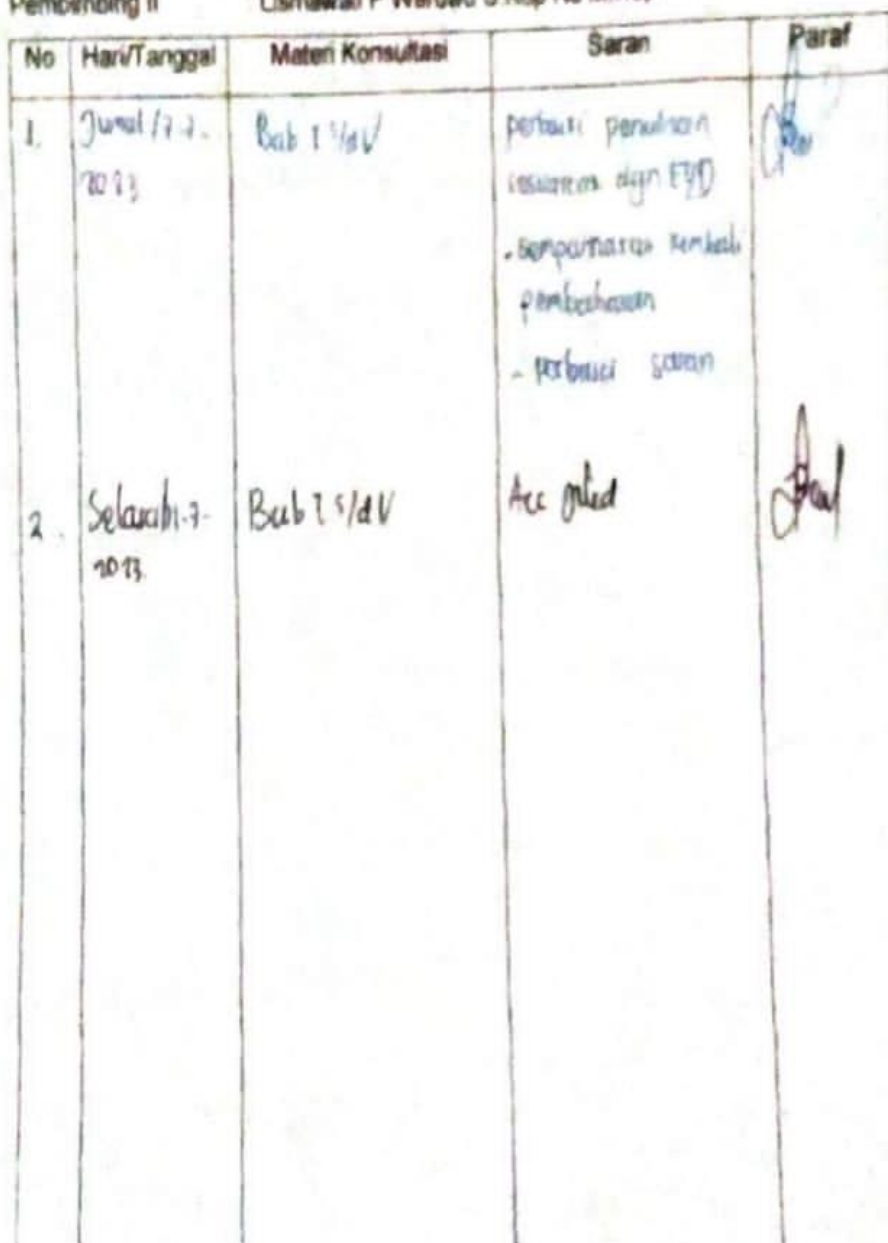 Pembimbing II
No Hari/Tanggal Materi Konsultasi Saran Paraf
1. Jumat /7-7- Bab I s/d V perbaiki penulisan
2023 sesuaikan dgn EYD
- sempurnakan kembali
pembahasan
- perbaiki saran
2. Bab I s/d V Acc
2023